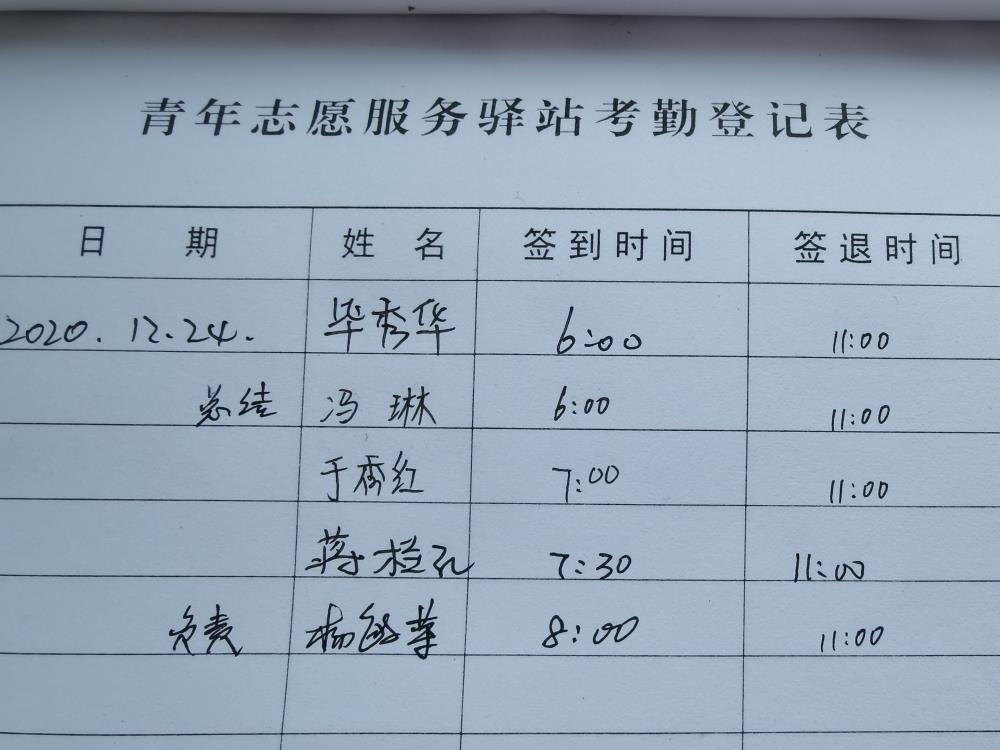 青年志愿服务驿站考勤登记表
日 期 姓 名 签到时间 签退时间
2020.12.24. 毕秀华 6:00 11:00
总结 冯琳 6:00 11:00
于秀红 7:00 11:00
蒋 7:30 11:00
负责 杨 8:00 11:00